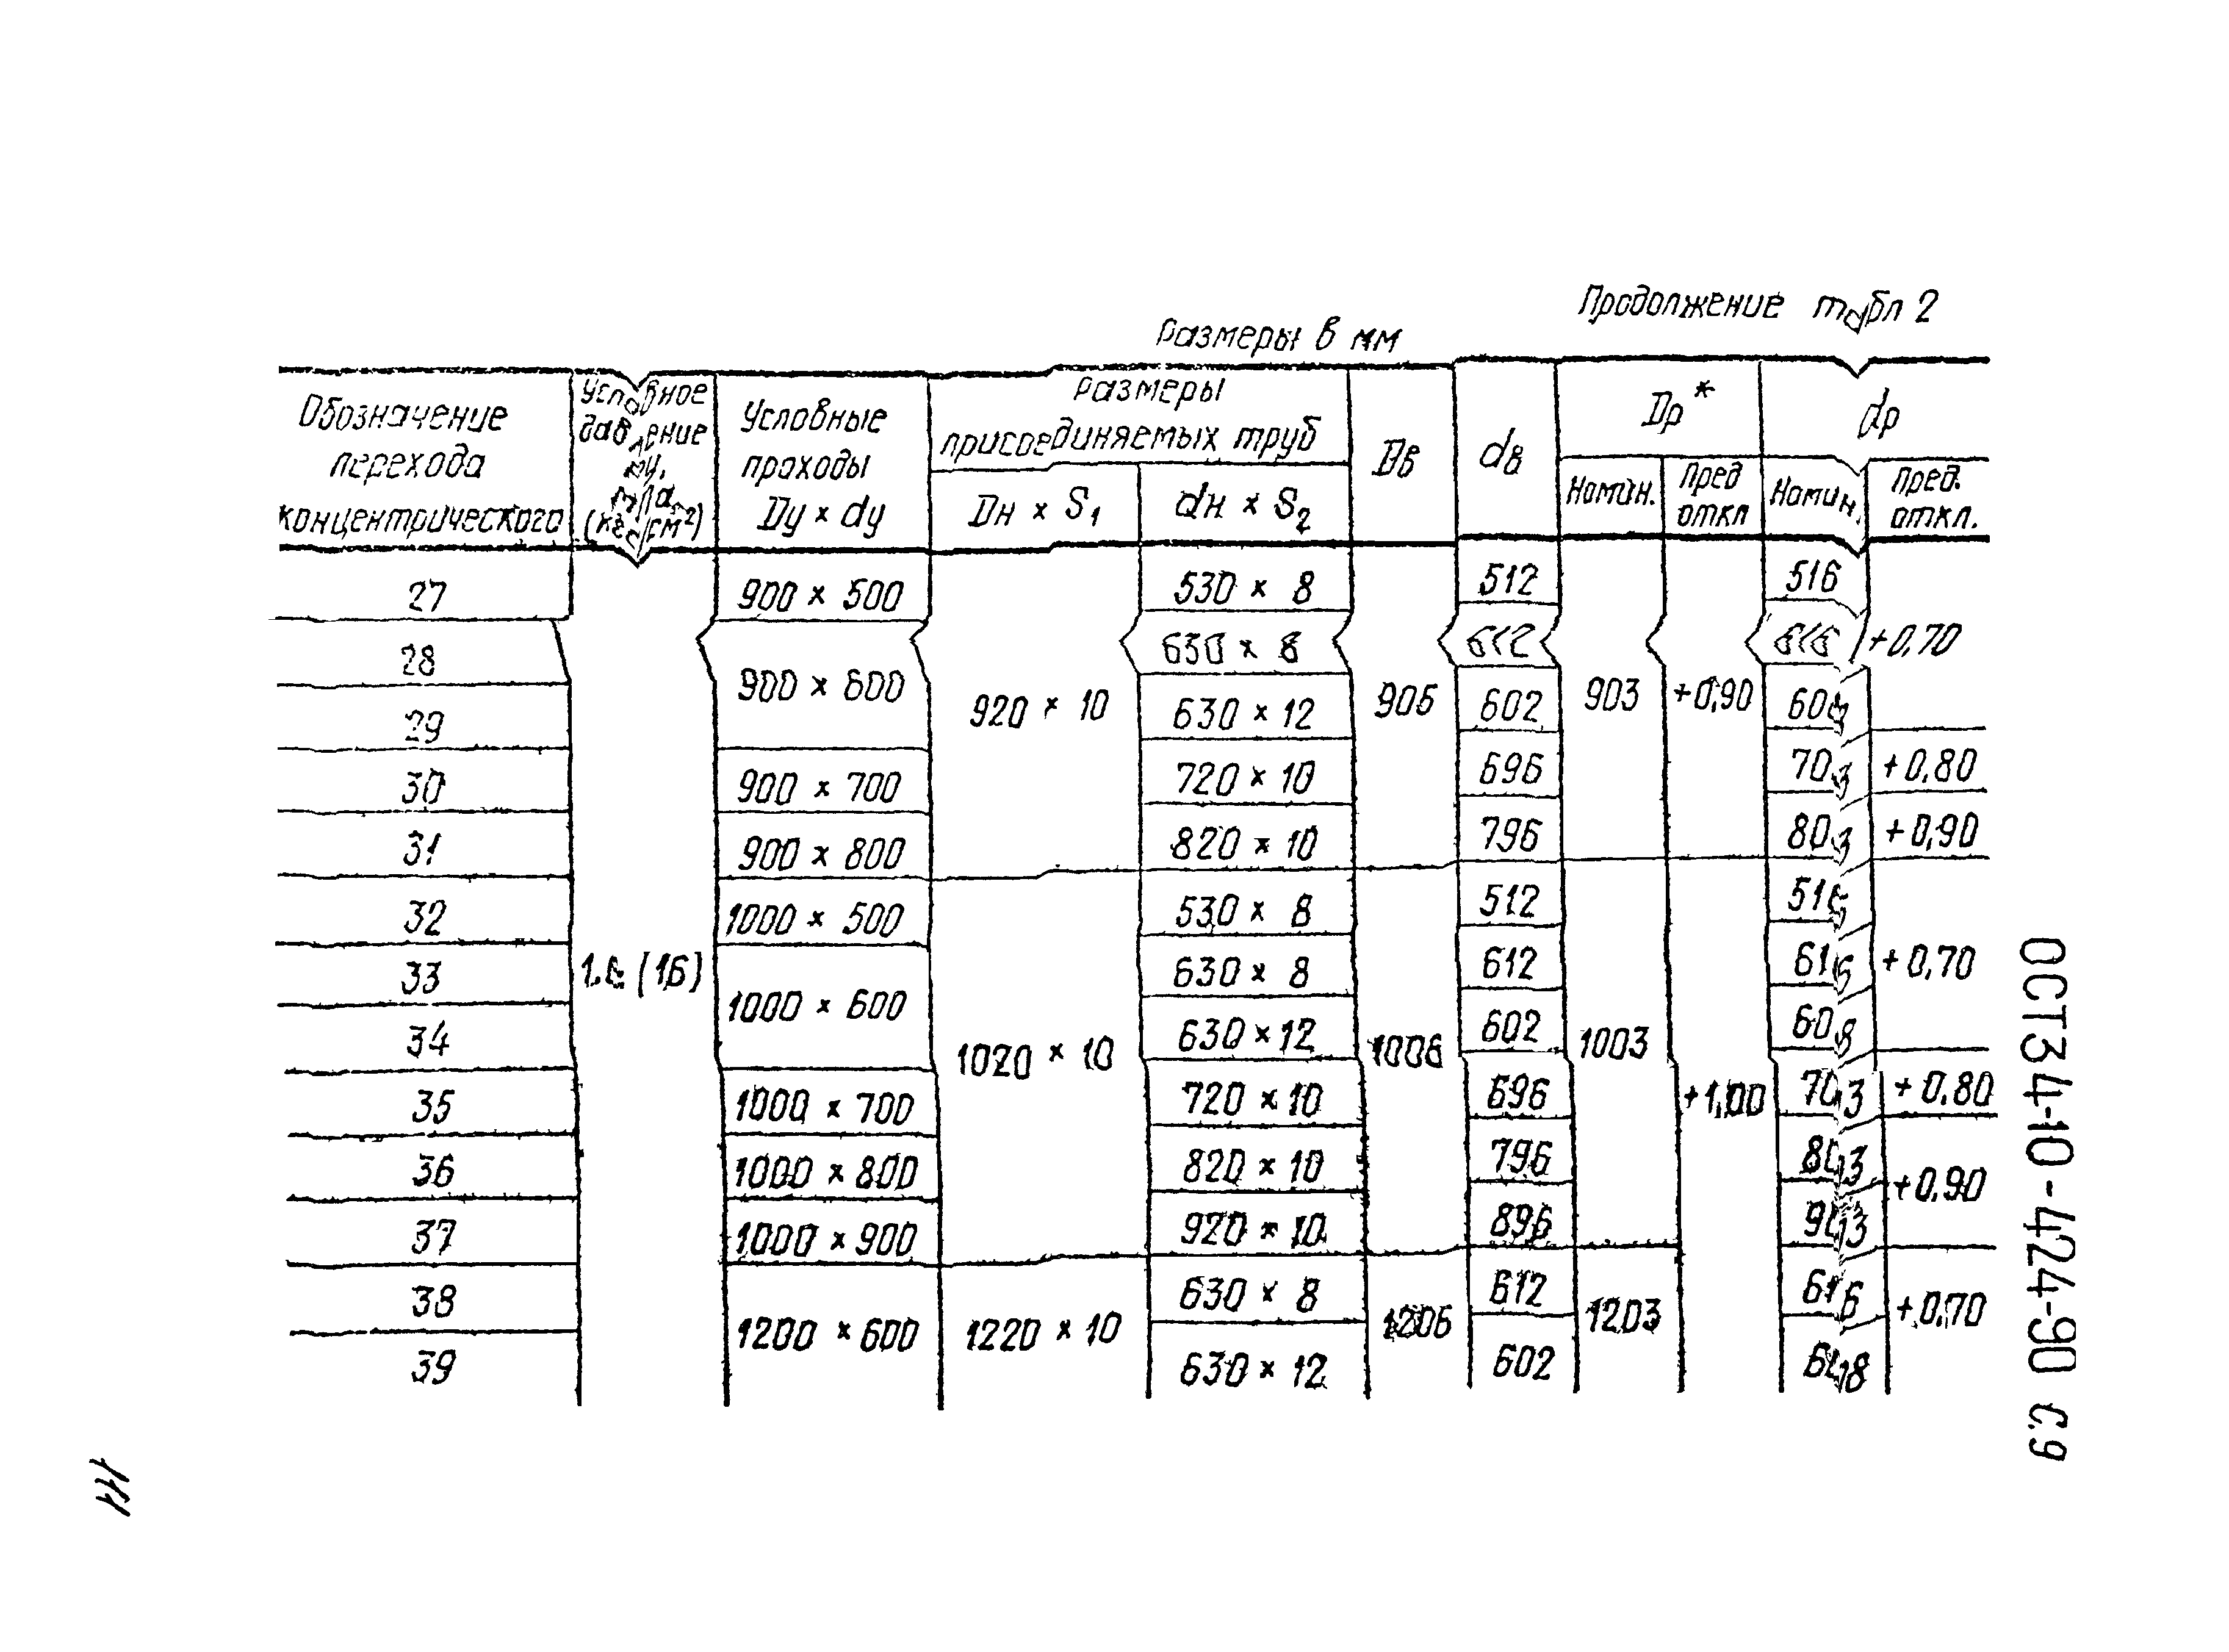 Продолжение табл 2
Размеры в мм
Обозначение перехода концентрического
Условное давление Pу, МПа (кгс/см²)
Условные проходы Dу × dу
Размеры присоединяемых труб
Dн × S₁
dн × S₂
Dв
dв
Dр*
dр
Номин.
Пред откл
Номин.
Пред. откл.
27 900 × 500 530 × 8 512 516
28 630 × 8 612 616 +0,70
900 × 600 920 × 10 906 903 +0,90
29 630 × 12 602 608
30 900 × 700 720 × 10 696 703 +0,80
31 900 × 800 820 × 10 796 803 +0,90
32 1000 × 500 530 × 8 512 516
33 1.6 (16) 630 × 8 612 616 +0,70
1000 × 600
34 1020 × 10 630 × 12 1006 602 1003 608
35 1000 × 700 720 × 10 696 +1,00 703 +0,80
36 1000 × 800 820 × 10 796 803
+0,90
37 1000 × 900 920 × 10 896 903
38 630 × 8 612 616
1200 × 600 1220 × 10 1206 1203 +0,70
39 630 × 12 602 608
ОСТ 34-10-424-90 С.9
111